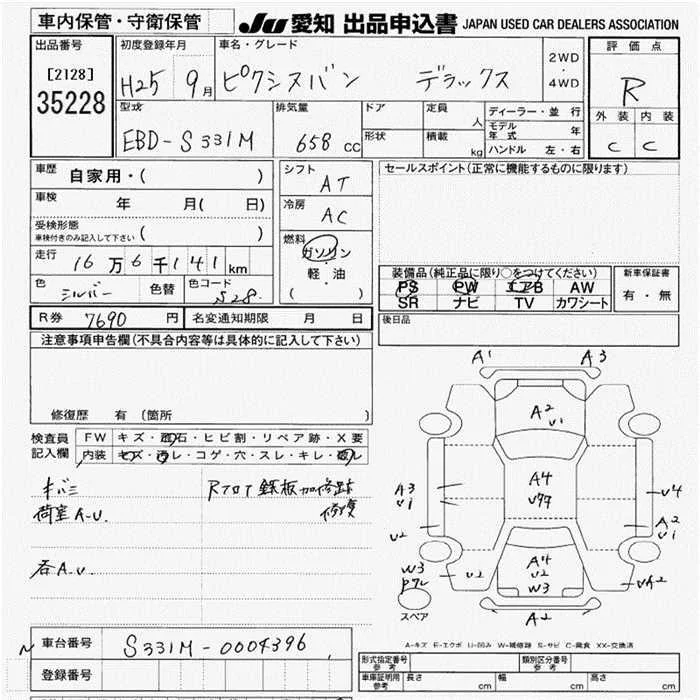 車内保管・守衛保管
JU 愛知 出品申込書 JAPAN USED CAR DEALERS ASSOCIATION
出品番号
[2128]
35228
初度登録年月
H25 9月
車名・グレード
ピクシスバン デラックス
2WD
・
4WD
評価点
R
外装 内装
C C
型式
EBD-S331M
排気量
658 cc
ドア
形状
定員 人
積載 kg
ディーラー・並行
モデル年式 年
ハンドル 左・右
車歴 自家用・( )
車検 年 月( 日)
受検形態
車検付きのみ記入して下さい ( )
走行 16万6千141 km
色 シルバー 色替 色コード S28.
シフト AT
冷房 AC
燃料
ガソリン
軽・油
( )
セールスポイント(正常に機能するものに限ります)
装備品(純正品に限り○をつけてください)
PS PW エアB AW
SR ナビ TV カワシート
新車保証書
有・無
R券 7690 円 名変通知期限 月 日
後日品
注意事項申告欄(不具合内容等は具体的に記入して下さい)
修復歴 有 (箇所 )
検査員
記入欄
FW キズ・飛石・ヒビ割・リペア跡・X要
内装 キズ・汚レ・コゲ・穴・スレ・キレ・破レ
キバミ
荷室A-U.
Rフロア鉄板加修跡
修復
各A.U.
A1 A3
A2
U1
A4
U99
A3
U1
U2
U4
A2
U1
A4
U2
W3
W3
U2
UA2
A2
スペア
A-キズ E-エクボ U-凹み W-補修跡 S-サビ C-腐食 XX-交換済
車台番号 S331M-0004396
登録番号
形式指定番号
参考
類別区分番号
参考
車庫証明用
参考
長さ cm 幅 cm 高さ cm